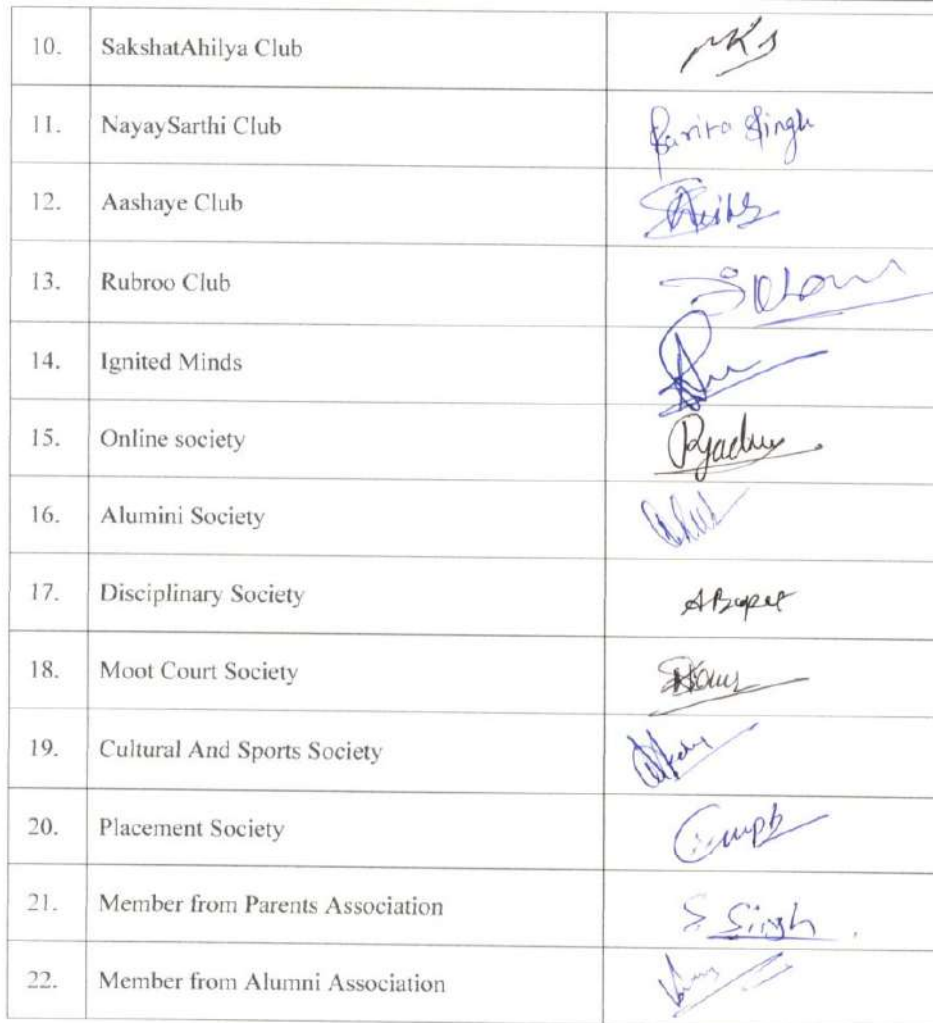 10. SakshatAhilya Club
11. NayaySarthi Club Sarita Singh
12. Aashaye Club
13. Rubroo Club
14. Ignited Minds
15. Online society
16. Alumini Society
17. Disciplinary Society
18. Moot Court Society
19. Cultural And Sports Society
20. Placement Society
21. Member from Parents Association S Singh
22. Member from Alumni Association